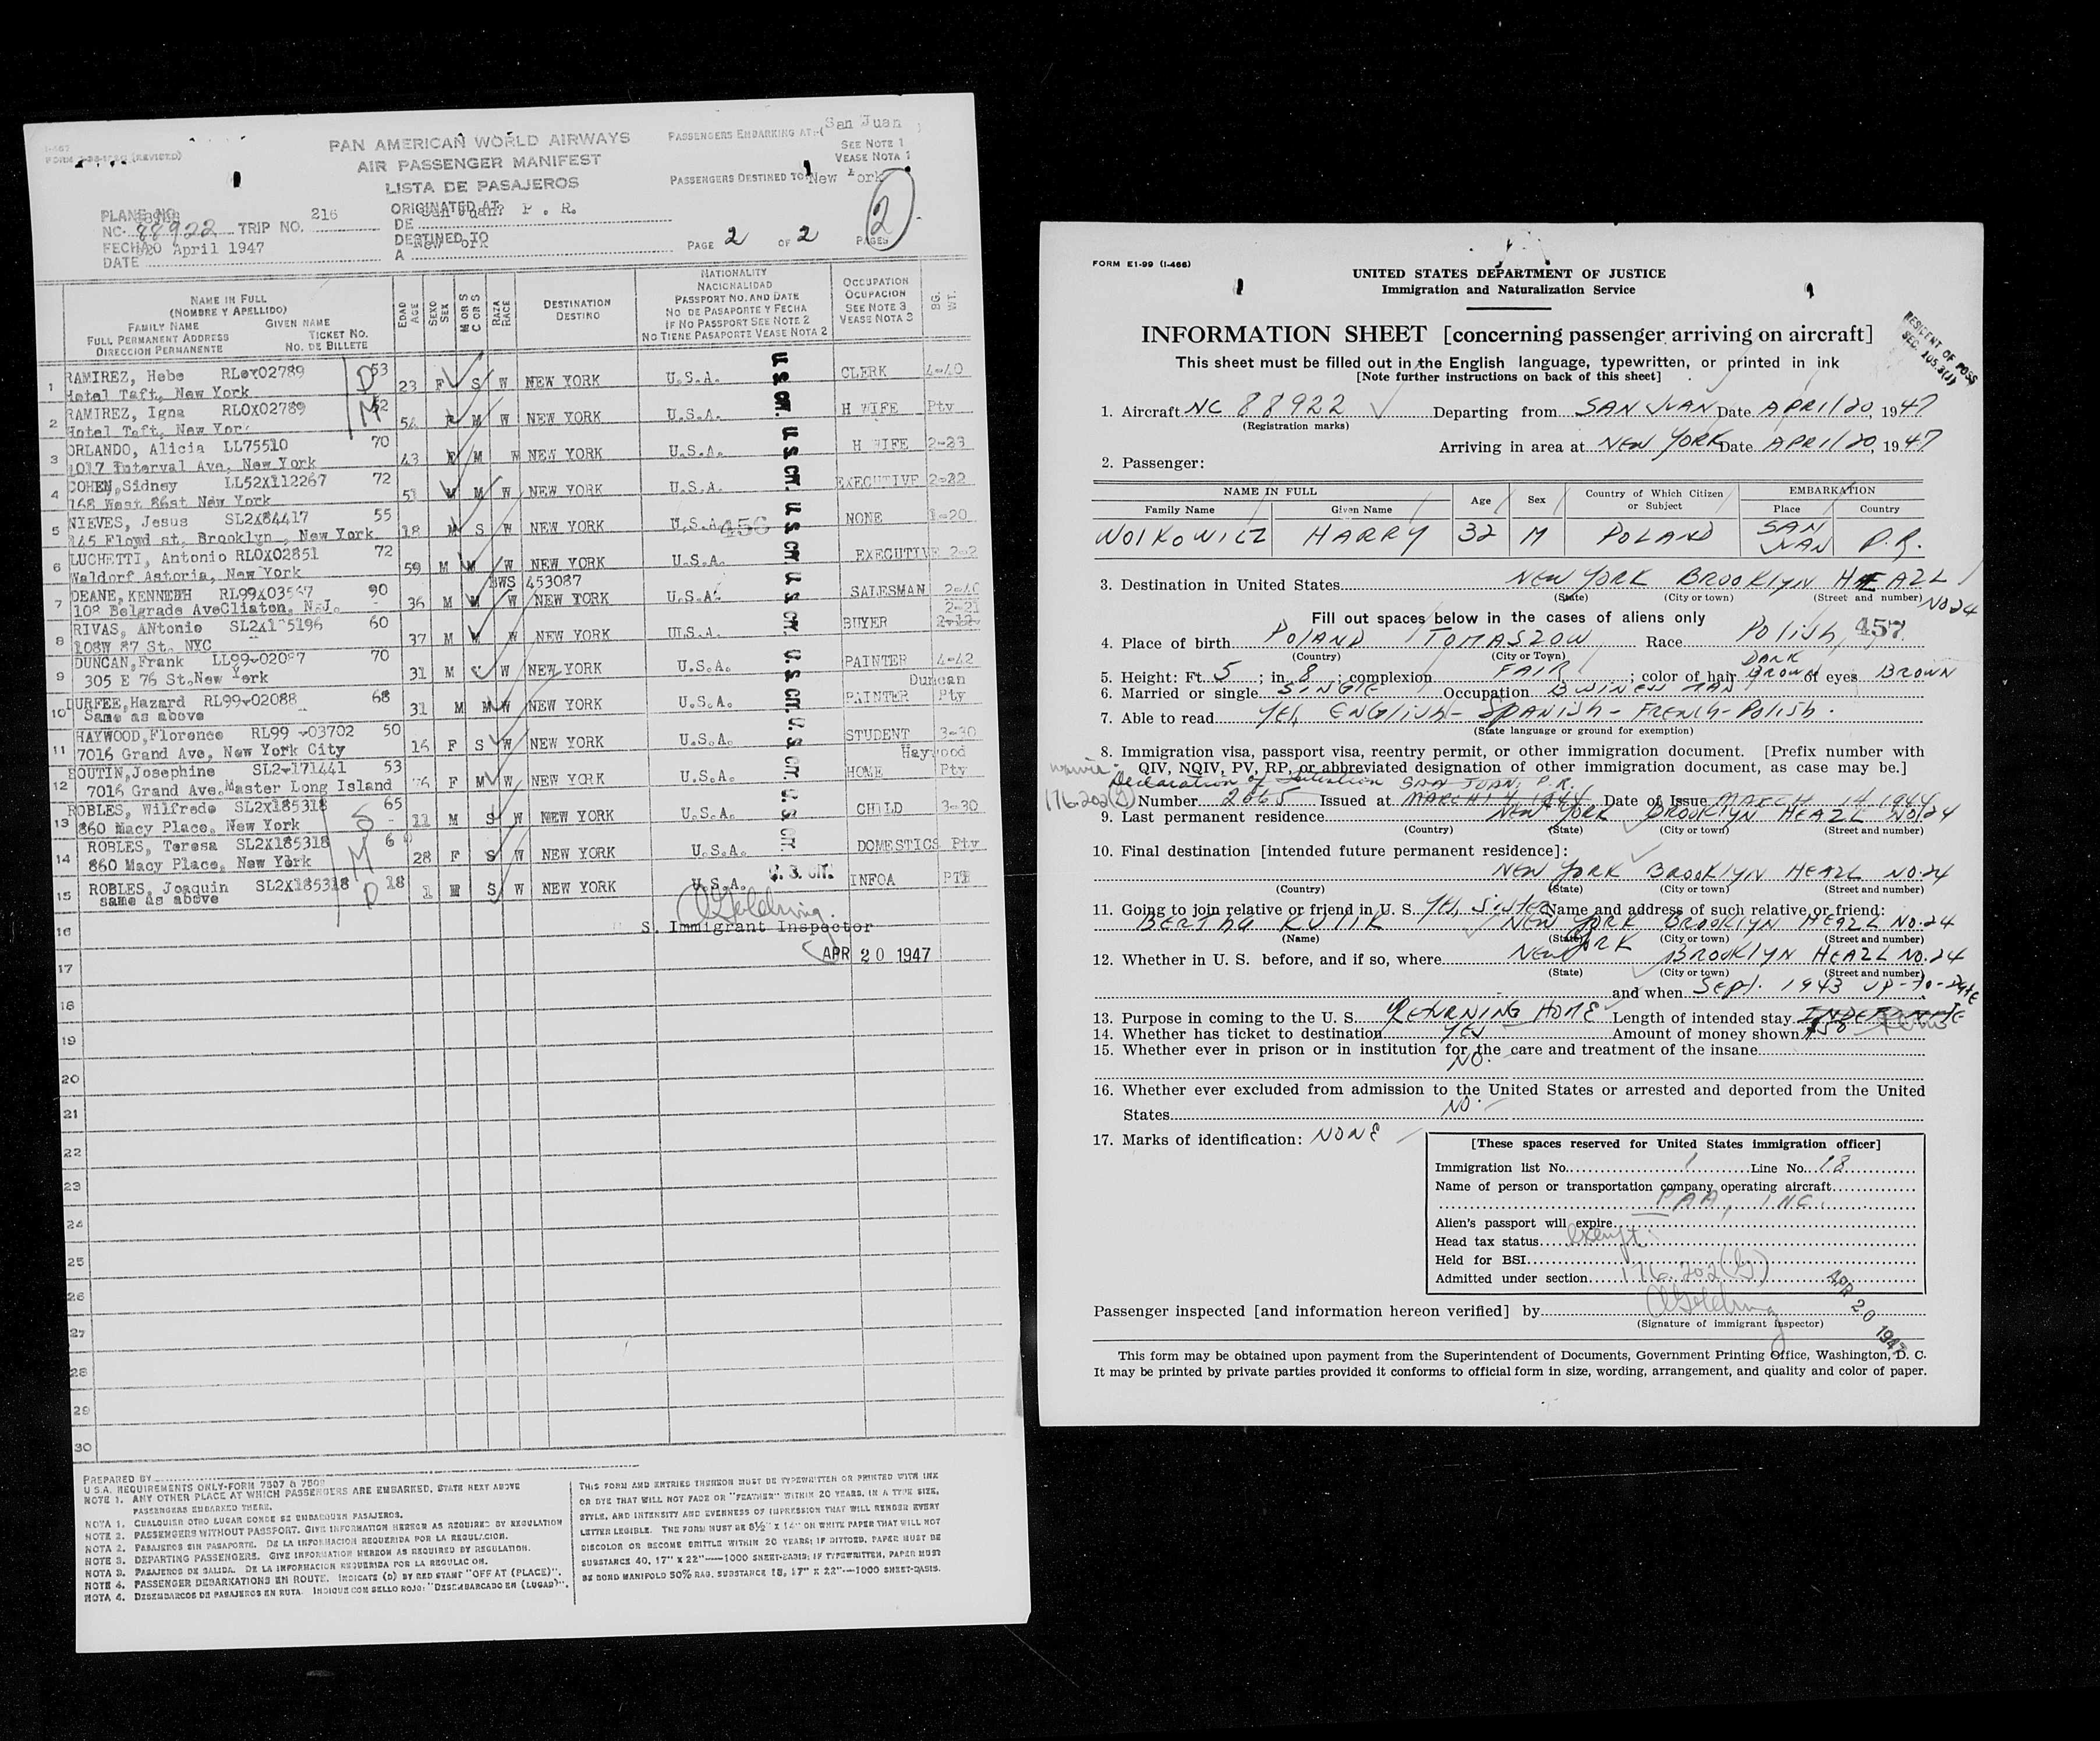 PAN AMERICAN WORLD AIRWAYS
AIR PASSENGER MANIFEST
LISTA DE PASAJEROS
PASSENGERS EMBARKING AT:-(San Juan )
SEE NOTE 1
VEASE NOTA 1
PASSENGERS DESTINED TO New York
2
PLANE NO.
NC- 88922 TRIP NO. 216
FECHA
DATE 20 April 1947
ORIGINATED AT San Juan P. R.
DE
DESTINED TO
A
PAGE 2 OF 2 PAGES
NAME IN FULL
(NOMBRE Y APELLIDO)
FAMILY NAME GIVEN NAME
FULL PERMANENT ADDRESS TICKET NO.
DIRECCION PERMANENTE NO. DE BILLETE
EDAD AGE
SEXO SEX
M OR S
C OR S
RAZA RACE
DESTINATION
DESTINO
NATIONALITY
NACIONALIDAD
PASSPORT NO. AND DATE
NO DE PASAPORTE Y FECHA
IF NO PASSPORT SEE NOTE 2
NO TIENE PASAPORTE VEASE NOTA 2
OCCUPATION
OCUPACION
SEE NOTE 3
VEASE NOTA 3
BG. WT.
1 RAMIREZ, Hebe 53 23 F S W NEW YORK U.S.A. CLERK 4-40
Hotel Taft, New York
2 RAMIREZ, Igna RL0X02789 52 M W NEW YORK U.S.A. H WIFE Pty
Hotel Taft, New Yor
3 ORLANDO, Alicia LL75510 70 43 F M W NEW YORK U.S.A. H WIFE 2-23
1017 Interval Ave, New York
4 COHEN, Sidney LL52X112267 72 51 M M W NEW YORK U.S.A. EXECUTIVE 2-22
168 West 86st New York
5 NIEVES, Jesus SL2X84417 55 18 M S W NEW YORK U.S.A. 456 NONE 1-20
145 Floyd st, Brooklyn, New York
6 LUCHETTI, Antonio RL0X02851 72 59 M M W NEW YORK U.S.A. EXECUTIVE 2-2
Waldorf Astoria, New York
BWS 453087
7 DEANE, KENNETH 90 36 M M W NEW YORK U.S.A. SALESMAN
108 Belgrade Ave Cliaton, N.J. 2-21
8 RIVAS, ANtonio 60 37 M M W NEW YORK U.S.A. BUYER
108W 87 St. NYC
9 DUNCAN, Frank 70 31 M W NEW YORK U.S.A. PAINTER 4-42
305 E 76 St, New York
Duncan
10 DURFEE, Hazard RL99-02088 68 31 M M W NEW YORK U.S.A. PAINTER Pty
Same as above
11 HAYWOOD, Florence RL99 -03702 50 16 F S W NEW YORK U.S.A. STUDENT 3-30
7016 Grand Ave, New York City
Haywood
12 BOUTIN, Josephine SL2-171441 53 76 F M W NEW YORK U.S.A. HOME Pty
7016 Grand Ave, Master Long Island
13 ROBLES, Wilfredo SL2X185318 65 11 M S W NEW YORK U.S.A. CHILD 3-30
860 Macy Place, New York
14 ROBLES, Teresa SL2X185318 28 F S W NEW YORK U.S.A. DOMESTICS Pty
860 Macy Place, New York
15 ROBLES, Joaquin SL2X185318 18 1 M S W NEW YORK U.S.A. U.S. CIT. INFOA
same as above
16 S. Immigrant Inspector
APR 20 1947
17
18
19
20
21
22
23
24
25
26
27
28
29
30
PREPARED BY
U.S.A. REQUIREMENTS ONLY-FORM 7507 & 7508
NOTE 1. ANY OTHER PLACE AT WHICH PASSENGERS ARE EMBARKED, STATE NEXT ABOVE
PASSENGERS EMBARKED THERE.
NOTA 1. CUALQUIER OTRO LUGAR DONDE SE EMBARQUEN PASAJEROS.
NOTE 2. PASSENGERS WITHOUT PASSPORT. GIVE INFORMATION HEREON AS REQUIRED BY REGULATION
NOTA 2. PASAJEROS SIN PASAPORTE. DE LA INFORMACION REQUERIDA POR LA REGULACION.
NOTE 3. DEPARTING PASSENGERS. GIVE INFORMATION HEREON AS REQUIRED BY REGULATION.
NOTA 3. PASAJEROS DE SALIDA. DE LA INFORMACION REQUERIDA POR LA REGULACION.
NOTE 4. PASSENGER DEBARKATIONS EN ROUTE. INDICATE (D) BY RED STAMP "OFF AT (PLACE)".
NOTA 4. DESEMBARCOS DE PASAJEROS EN RUTA. INDIQUE CON SELLO ROJO: "DESEMBARCADO EN (LUGAR)".
THIS FORM AND ENTRIES THEREON MUST BE TYPEWRITTEN OR PRINTED WITH INK
OR DYE THAT WILL NOT FADE OR "FEATHER" WITHIN 20 YEARS, IN A TYPE SIZE,
STYLE, AND INTENSITY AND EVENNESS OF IMPRESSION THAT WILL RENDER EVERY
LETTER LEGIBLE. THE FORM MUST BE 8½" X 14" ON WHITE PAPER THAT WILL NOT
DISCOLOR OR BECOME BRITTLE WITHIN 20 YEARS; IF DITTOED, PAPER MUST BE
SUBSTANCE 40, 17" X 22"—1000 SHEET-BASIS; IF TYPEWRITTEN, PAPER MUST
BE BOND MANIFOLD 50% RAG, SUBSTANCE 18, 17" X 22"—1000 SHEET-BASIS.
FORM E1-99 (I-466)
UNITED STATES DEPARTMENT OF JUSTICE
Immigration and Naturalization Service
INFORMATION SHEET [concerning passenger arriving on aircraft]
RESIDENT OF POSS
SEC. 105.3(J)
This sheet must be filled out in the English language, typewritten, or printed in ink
[Note further instructions on back of this sheet]
1. Aircraft NC 88922 Departing from SAN JUAN Date APRIl 20, 1947
(Registration marks)
Arriving in area at NEW YORK Date APRIl 20, 1947
2. Passenger:
NAME IN FULL Age Sex Country of Which Citizen or Subject EMBARKATION
Family Name Given Name Place Country
WOlKOWICZ HARRY 32 M POLAND SAN JUAN P.R.
3. Destination in United States NEW YORK BROOKlyN HEAZL NO 24
(State) (City or town) (Street and number)
Fill out spaces below in the cases of aliens only
4. Place of birth POLAND TOMASZOW Race Polish 457
(Country) (City or Town)
5. Height: Ft. 5; in. 8; complexion FAIR; color of hair DARK BROWN eyes BROWN
6. Married or single SINGlE Occupation BUSINESS MAN
7. Able to read YES, ENGlish - SPANISH - FRENCH - POlish.
(State language or ground for exemption)
8. Immigration visa, passport visa, reentry permit, or other immigration document. [Prefix number with
QIV, NQIV, PV, RP, or abbreviated designation of other immigration document, as case may be.]
waiver Declaration of Intention SAN JUAN, P.R.
Number 2665 Issued at MARCH 14 1944 Date of Issue MARCH 14 1944
9. Last permanent residence NEW YORK BROOKlYN HEAZL NO. 24
(Country) (State) (City or town) (Street and number)
10. Final destination [intended future permanent residence]:
NEW YORK BROOKlyN HEAZL NO. 24
(Country) (State) (City or town) (Street and number)
11. Going to join relative or friend in U. S. YES, SISTER Name and address of such relative or friend:
BERTHA KULIK NEW YORK BROOKLYN HEAZL NO. 24
(Name) (State) (City or town) (Street and number)
12. Whether in U. S. before, and if so, where NEW YORK BROOKlyN HEAZL NO. 24
(State) (City or town) (Street and number)
and when Sept. 1943 UP-TO-DATE
13. Purpose in coming to the U. S. RETURNING HOME Length of intended stay INDEFINITE
14. Whether has ticket to destination YES Amount of money shown $50
15. Whether ever in prison or in institution for the care and treatment of the insane
NO.
16. Whether ever excluded from admission to the United States or arrested and deported from the United
States NO.
17. Marks of identification: NONE
[These spaces reserved for United States immigration officer]
Immigration list No. 1 Line No. 18
Name of person or transportation company operating aircraft
PAA, INC.
Alien's passport will expire
Head tax status exempt
Held for BSI
Admitted under section 176.202(G)
APR 20 1947
Passenger inspected [and information hereon verified] by
(Signature of immigrant inspector)
This form may be obtained upon payment from the Superintendent of Documents, Government Printing Office, Washington, D. C.
It may be printed by private parties provided it conforms to official form in size, wording, arrangement, and quality and color of paper.